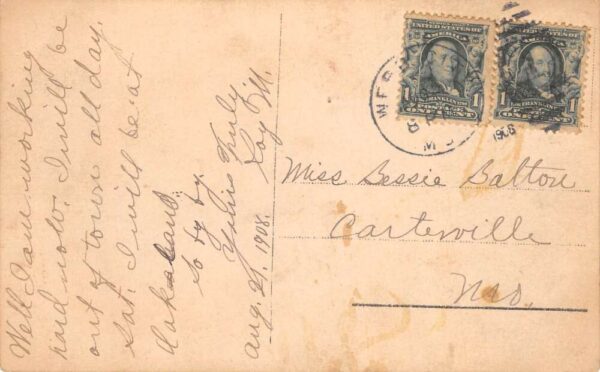 Well I am working
hard now. I will be
out of town all day
Sat. I will be at
Oakland.
So by by.
Yours Truly
Roy M.
Aug. 21, 1908.
UNITED STATES OF
AMERICA
FRANKLIN
POSTAGE
1 ONE CENT 1
UNITED STATES OF
AMERICA
FRANKLIN
1 ONE CENT 1
WEBB
MO
1908
Miss Bessie Balton
Carterville
Mo.